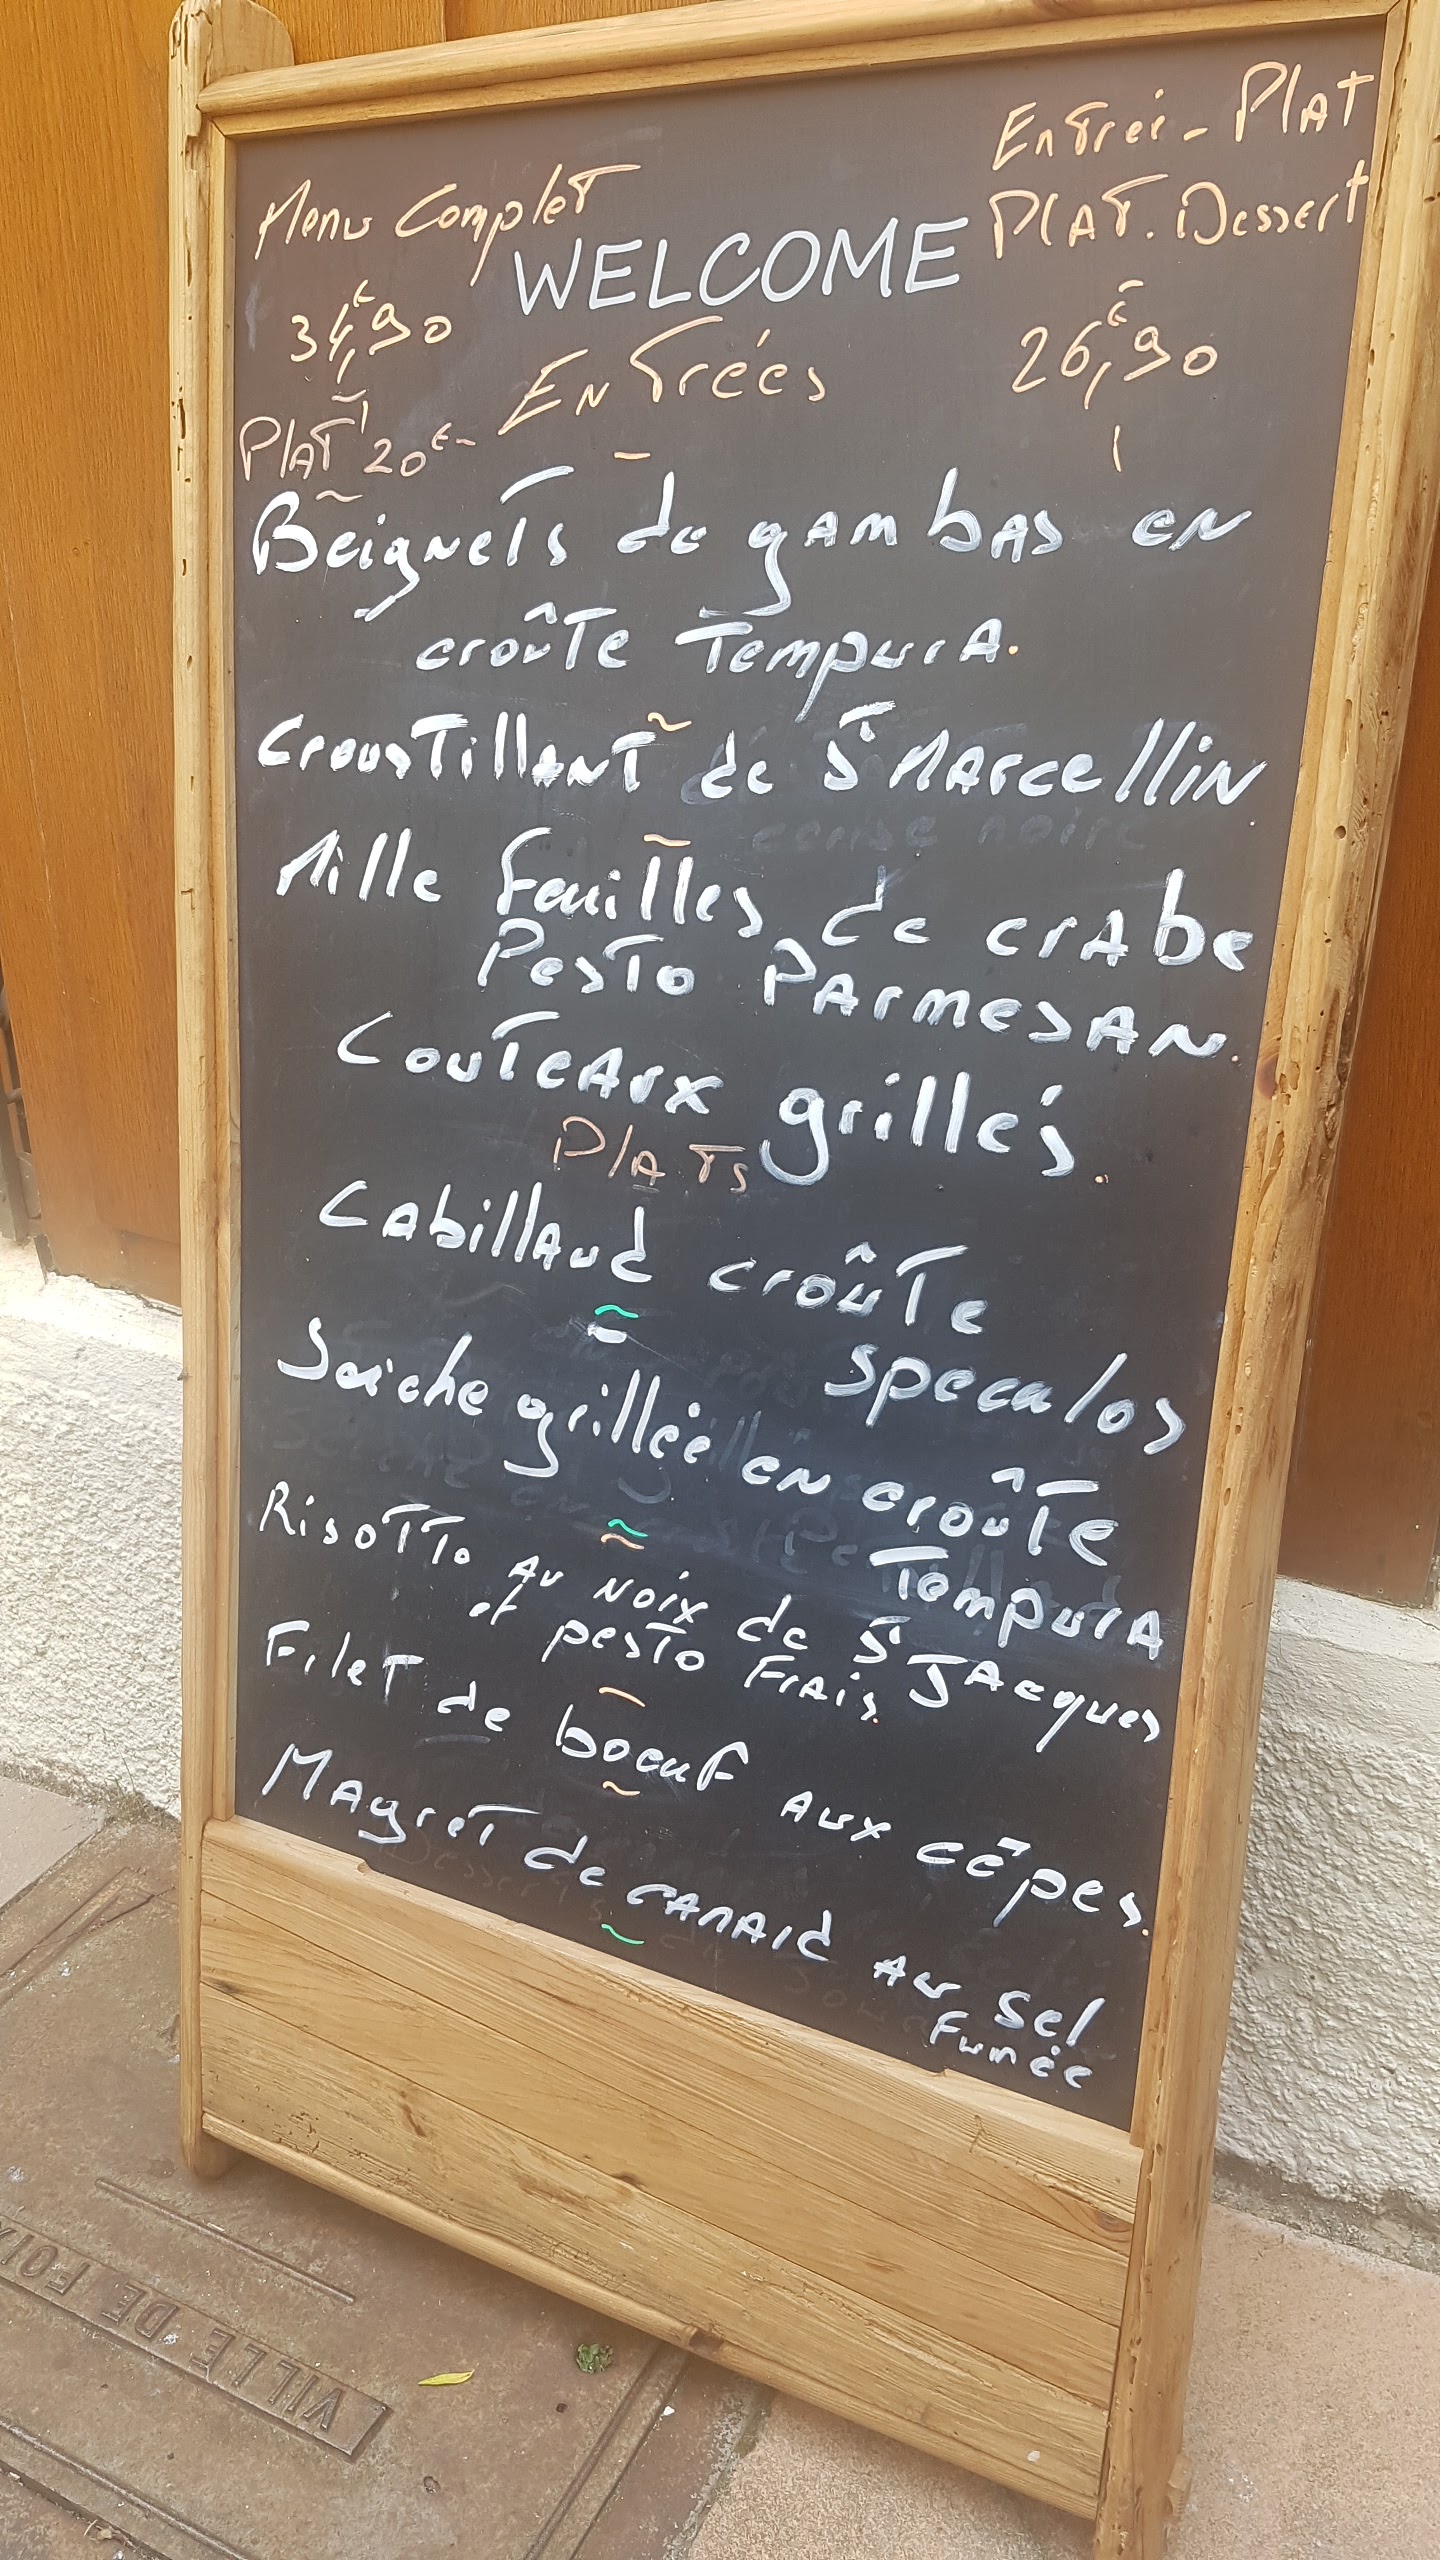 Menu Complet
34,€90
PLAT 20€
Entrée - PLAT
PLAT. Dessert
26,€90
WELCOME
Entrées
Beignets de gambas en
croûte Tempura.
Croustillant de St Marcellin
Mille feuilles de crabe
Pesto Parmesan.
Couteaux grillés.
Plats
Cabillaud croûte
speculos
Seiche grillée en croûte
Tempura
Risotto au noix de St Jacques
et pesto frais.
Filet de boeuf aux cêpes.
Magret de canard au sel
fumée
VILLE DE FOIX